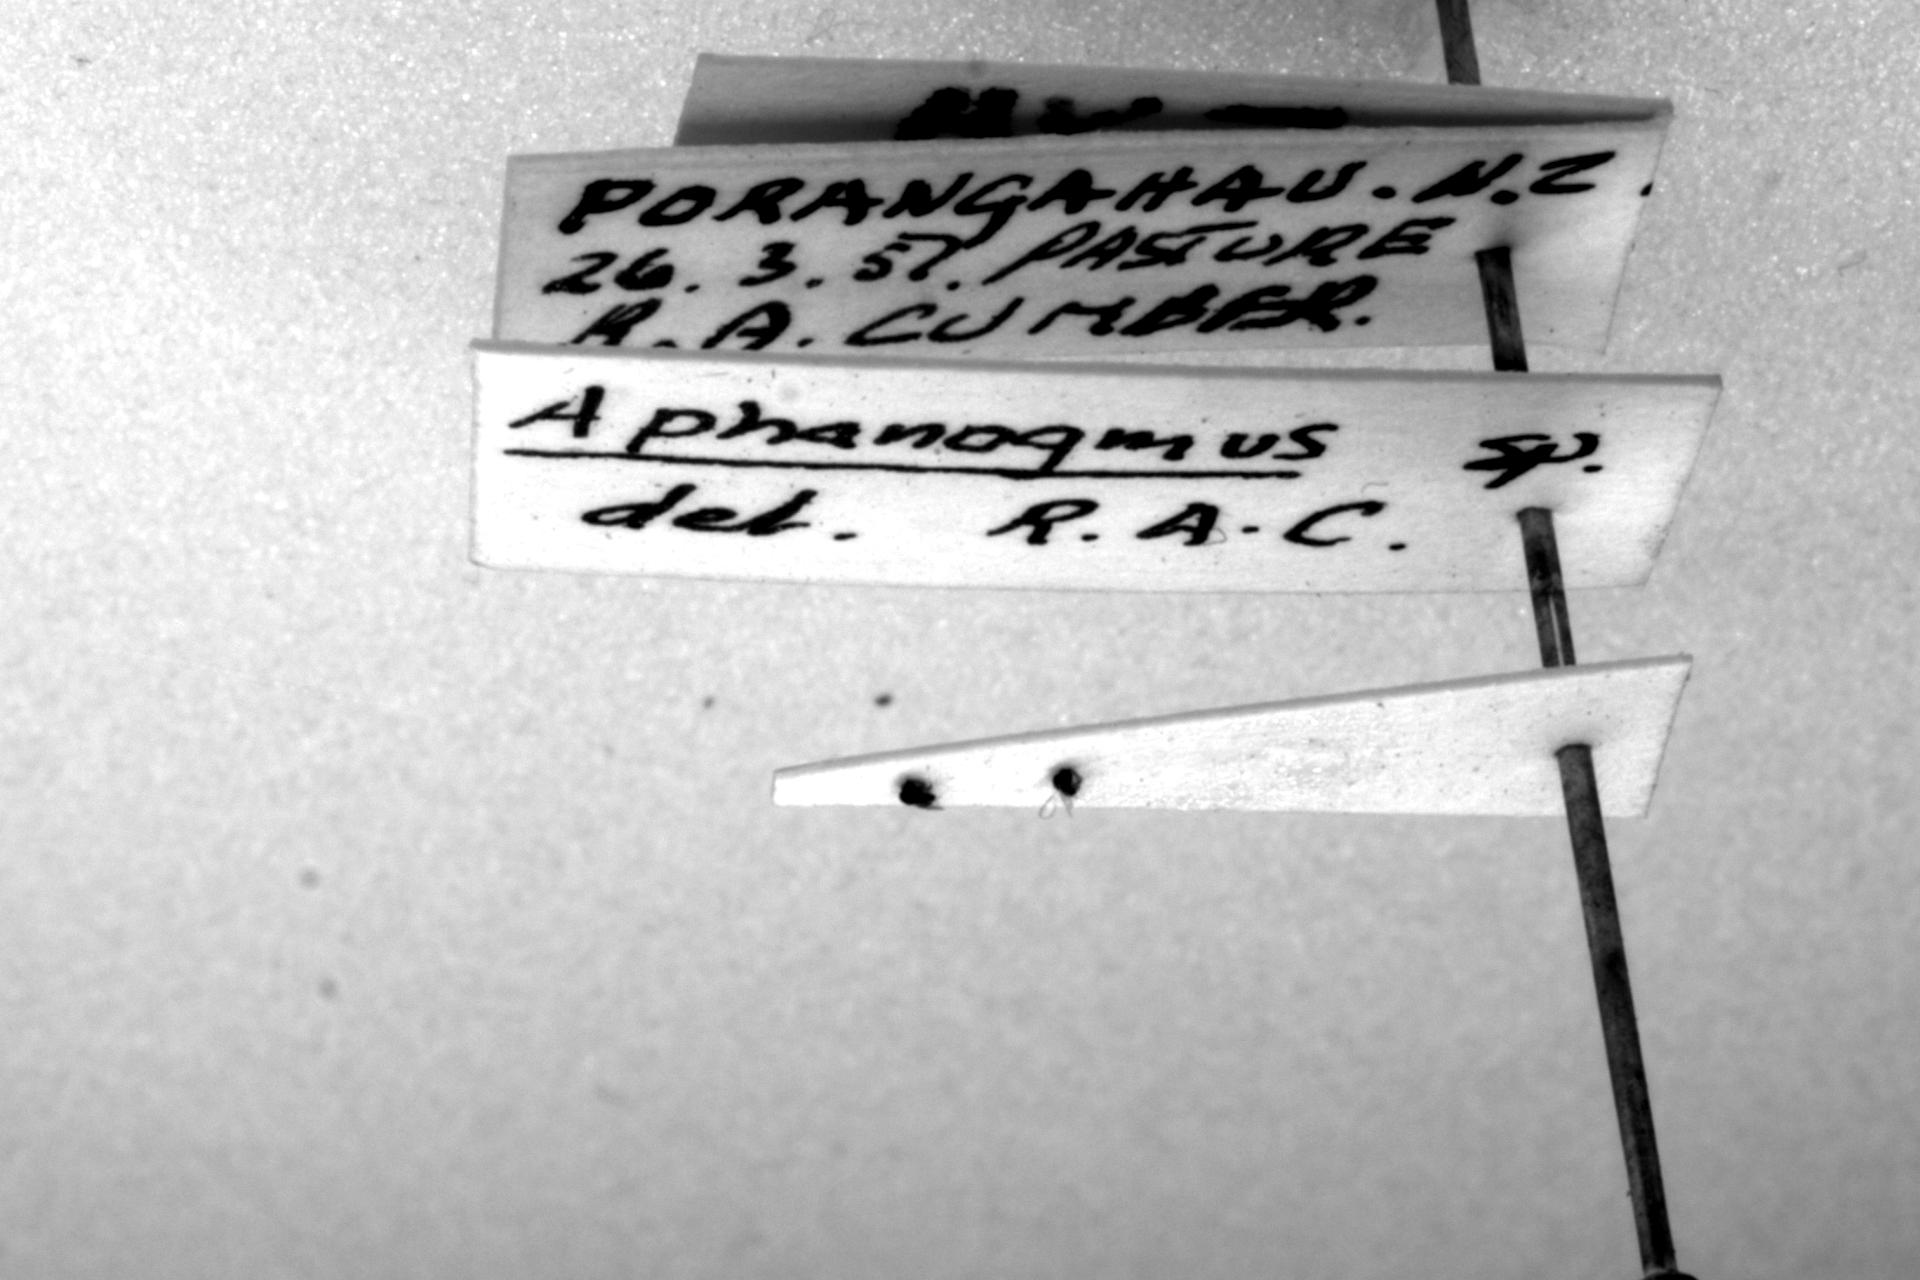 PORANGAHAU. N.Z.
26. 3. 57. PASTURE
R. A. CUMBER.
Aphanogmus sp.
det. R. A. C.